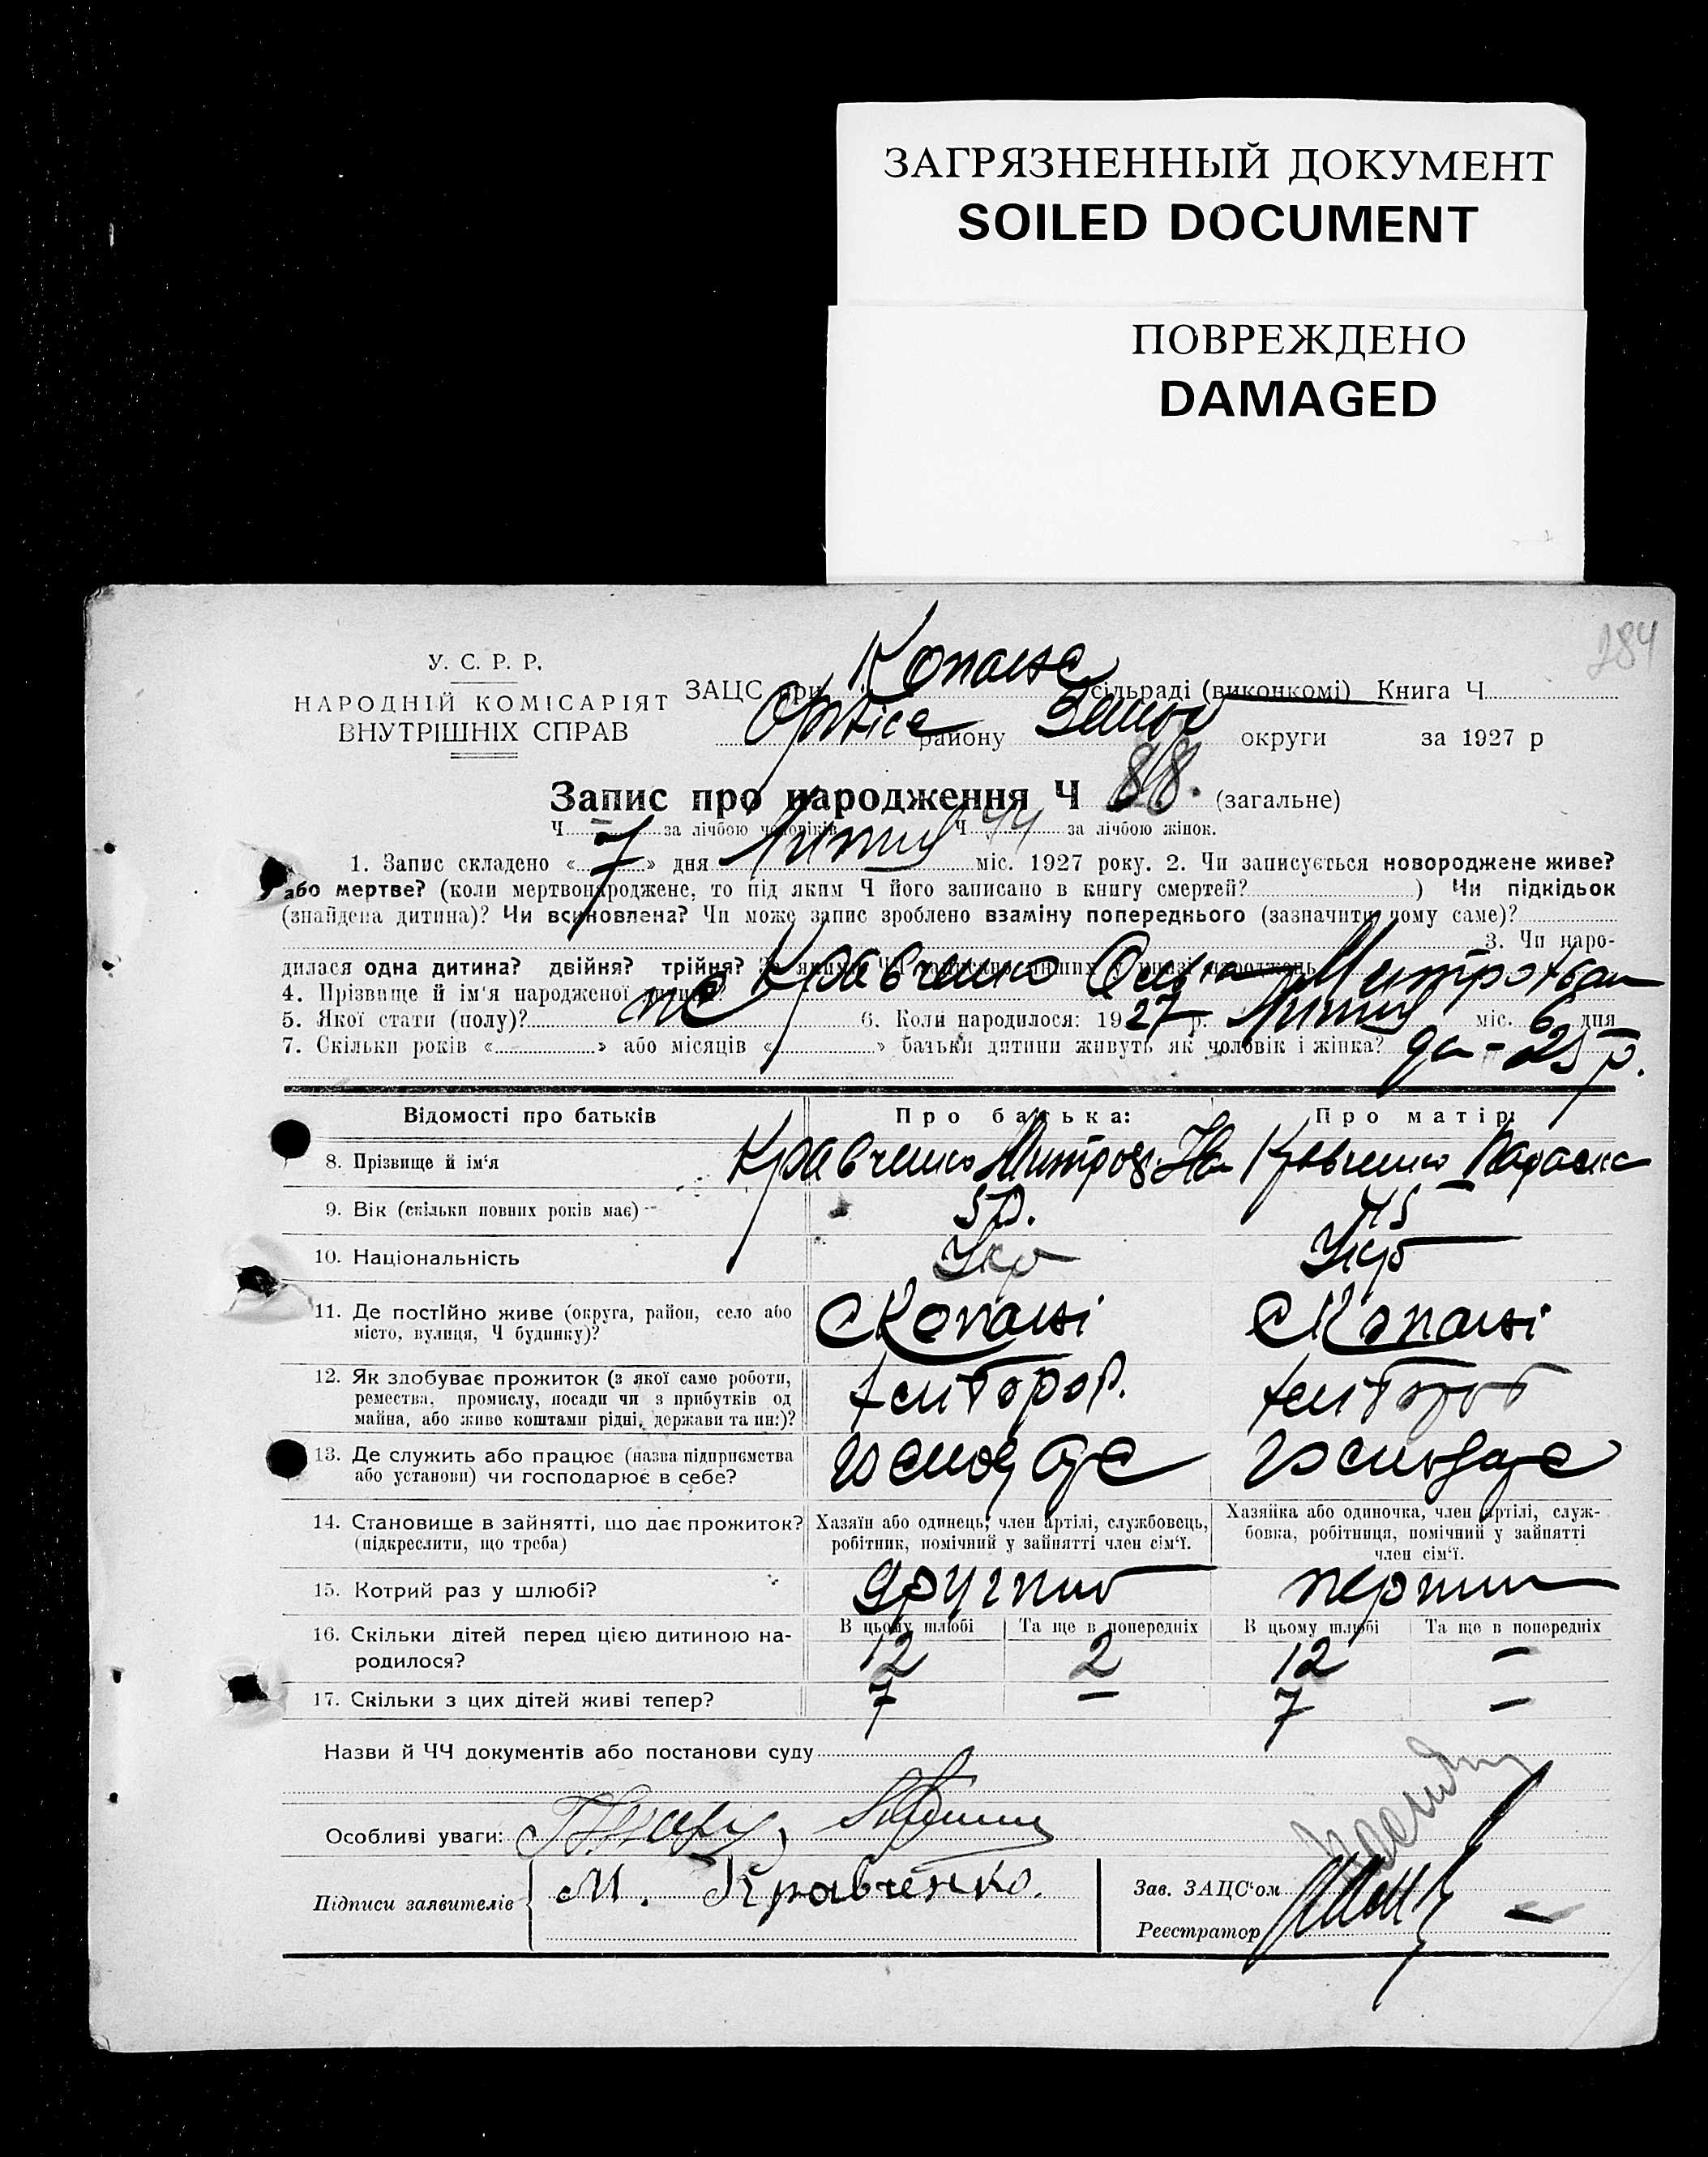 ЗАГРЯЗНЕННЫЙ ДОКУМЕНТ
SOILED DOCUMENT
ПОВРЕЖДЕНО
DAMAGED
284
У. С. Р. Р.
НАРОДНІЙ КОМІСАРІЯТ
ВНУТРІШНІХ СПРАВ
ЗАЦС при сільраді (виконкомі) Книга Ч
району округи за 1927 р
Запис про народження Ч 88. (загальне)
Ч за лічбою чоловіків Ч 44 за лічбою жінок.
1. Запис складено « 7 » дня Липня міс. 1927 року. 2. Чи записується новороджене живе?
або мертве? (коли мертвонароджене, то під яким Ч його записано в книгу смертей? ) Чи підкідьок
(знайдена дитина)? Чи всиновлена? Чи може запис зроблено взаміну попереднього (зазначити чому саме)?
3. Чи наро-
дилася одна дитина? двійня? трійня? За якими ЧЧ записано інших у книзі народжень
4. Прізвище й ім'я народженої дитини? Кравченко
5. Якої стати (полу)? 6. Коли народилося: 1927 р. Липня міс. 6 дня
7. Скільки років « » або місяців « » батьки дитини живуть як чоловік і жінка? 25 р.
Відомості про батьків Про батька: Про матір:
8. Прізвище й ім'я Кравченко Кравченко Параска
9. Вік (скільки повних років має) 50. 45
10. Національність Укр Укр
11. Де постійно живе (округа, район, село або
місто, вулиця, Ч будинку)?
12. Як здобуває прожиток (з якої саме роботи,
ремества, промислу, посади чи з прибутків од
майна, або живе коштами рідні, держави та ин:)?
хлібороб. хлібороб
13. Де служить або працює (назва підприємства
або установи) чи господарює в себе?
14. Становище в зайнятті, що дає прожиток?
(підкреслити, що треба)
Хазяїн або одинець, член артілі, службовець,
робітник, помічний у зайнятті член сім'ї.
Хазяйка або одиночка, член артілі, служ-
бовка, робітниця, помічний у зайнятті
член сім'ї.
15. Котрий раз у шлюбі?
16. Скільки дітей перед цією дитиною на-
родилося?
В цьому шлюбі Та ще в попередніх В цьому шлюбі Та ще в попередніх
12 2 12 —
17. Скільки з цих дітей живі тепер? 7 — 7 —
Назви й ЧЧ документів або постанови суду
Особливі уваги:
Підписи заявителів М. Кравченко.
Зав. ЗАЦС'ом
Реєстратор